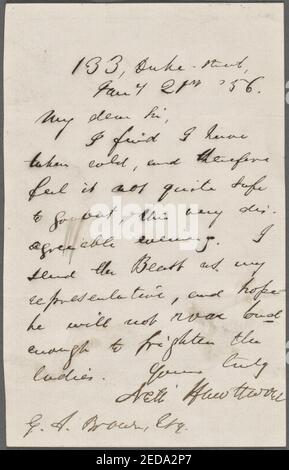 133, Duke-street,
Jan'y 21st '56.
My dear Sir,
I find I have
taken cold, and therefore
feel it not quite safe
to go out, this very dis-
agreeable evening. I
send the Beast as my
representative, and hope
he will not roar loud
enough to frighten the
ladies.
Yours truly
Nath Hawthorne
G. A. Brown, Esq.
alamy
Image ID: 2EDA2P7
www.alamy.com